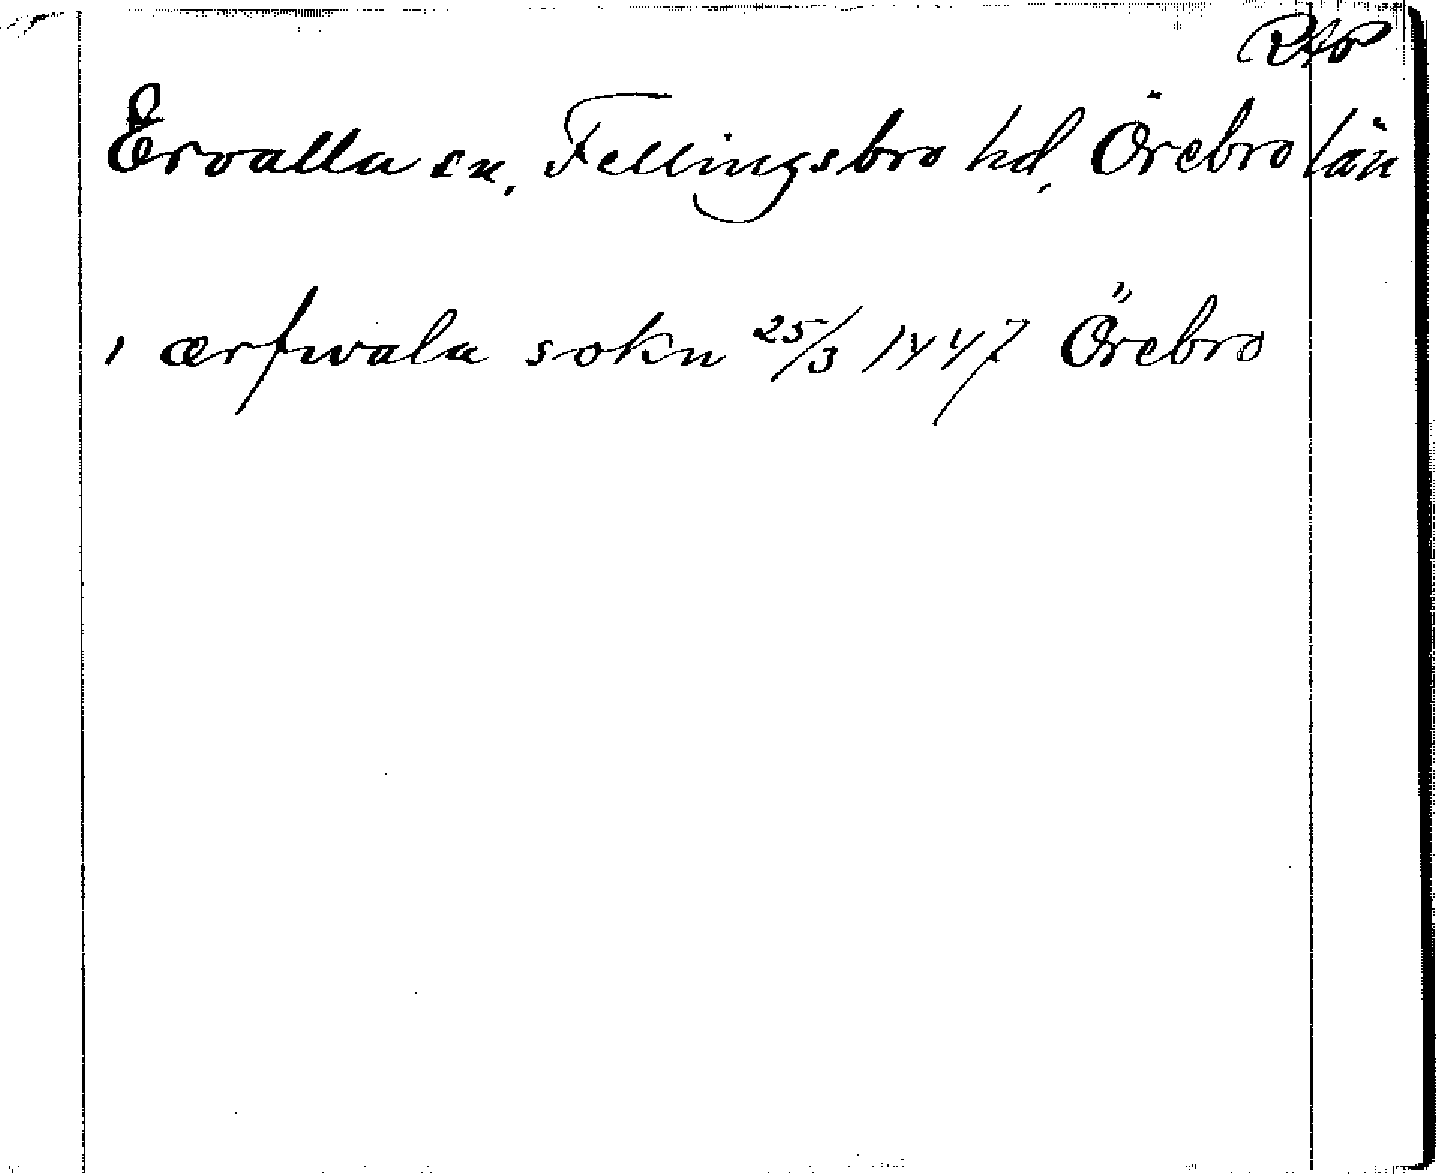 RAP
Ervalla sn. Fellingsbro hd. Örebro län
i ærfwala sokn 25/3 1447 Örebro